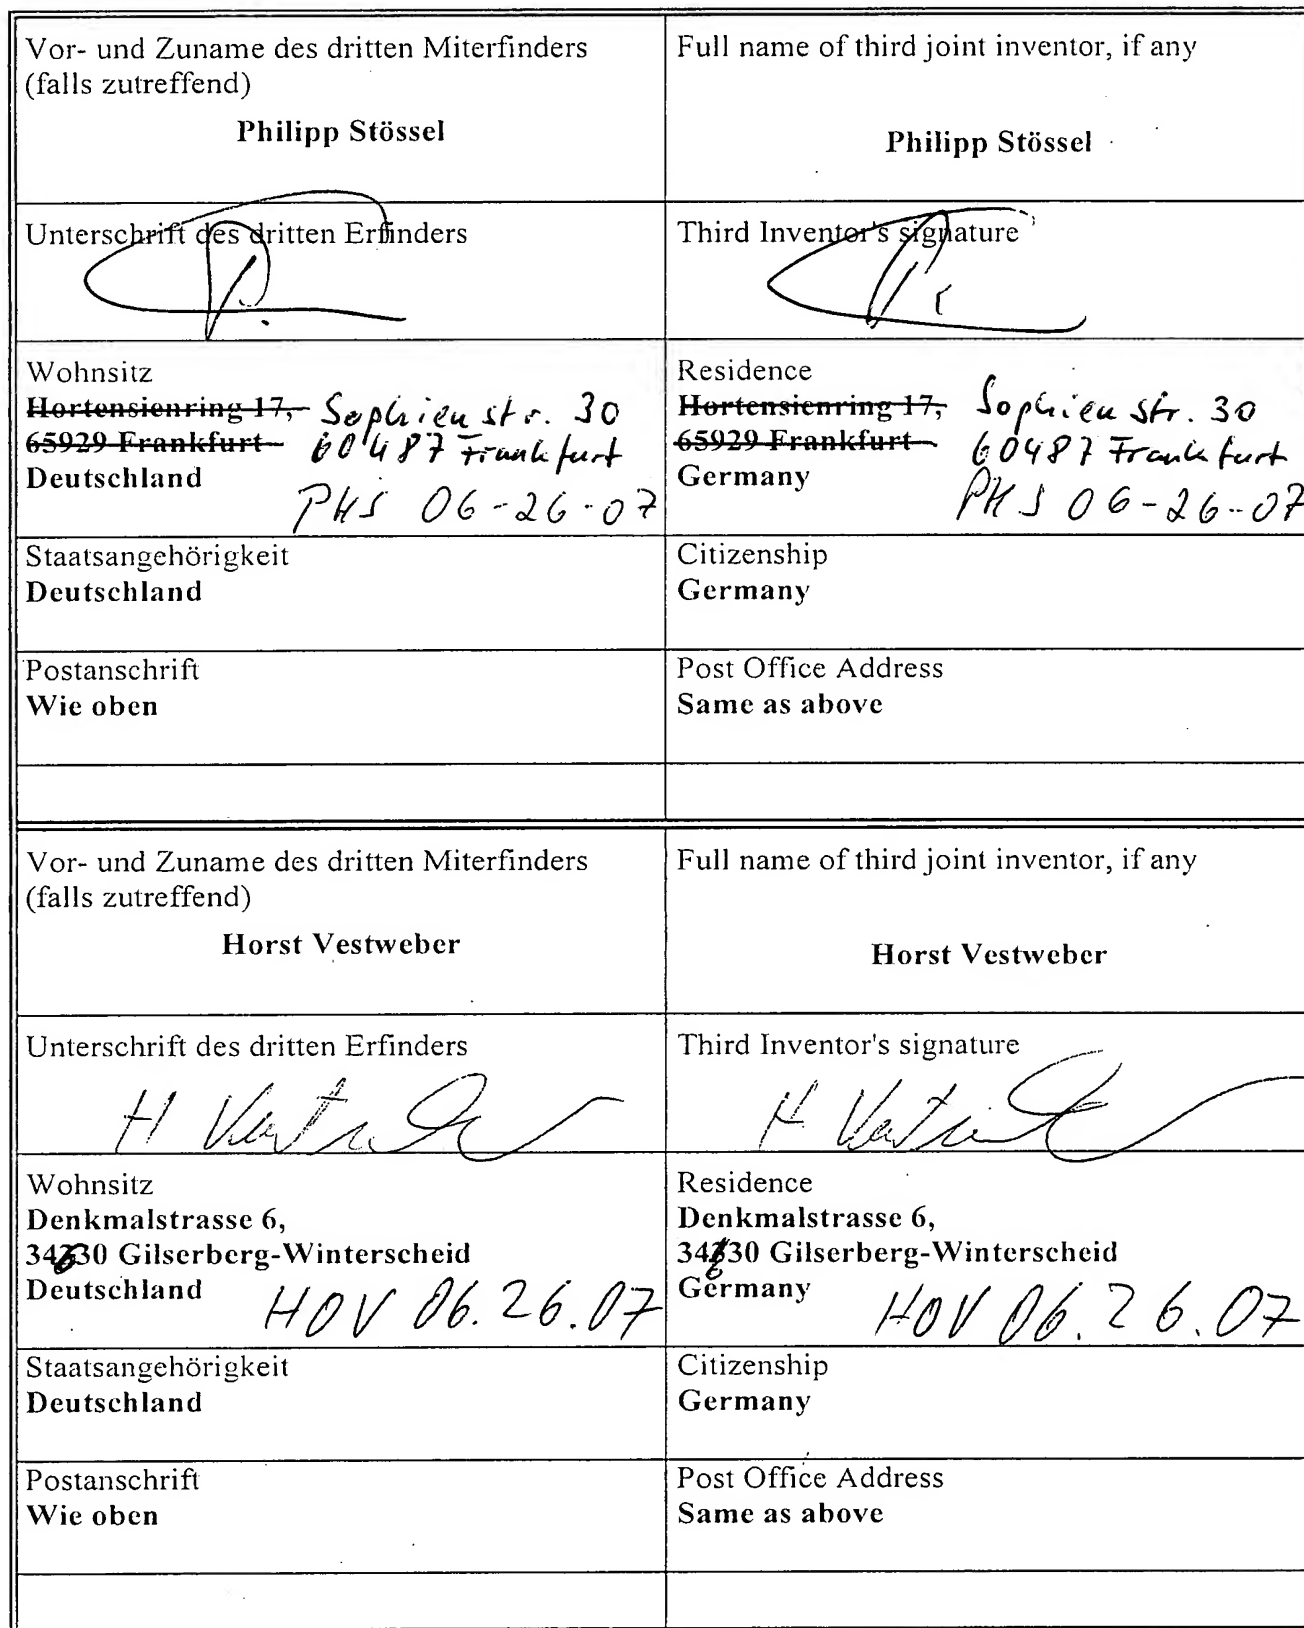 Vor- und Zuname des dritten Miterfinders
(falls zutreffend)
Philipp Stössel
Full name of third joint inventor, if any
Philipp Stössel
Unterschrift des dritten Erfinders
Third Inventor's signature
Wohnsitz
Hortensienring 17, Sophienstr. 30
65929 Frankfurt 60487 Frankfurt
Deutschland
PHS 06-26-07
Residence
Hortensienring 17, Sophienstr. 30
65929 Frankfurt 60487 Frankfurt
Germany
PHS 06-26-07
Staatsangehörigkeit
Deutschland
Citizenship
Germany
Postanschrift
Wie oben
Post Office Address
Same as above
Vor- und Zuname des dritten Miterfinders
(falls zutreffend)
Horst Vestweber
Full name of third joint inventor, if any
Horst Vestweber
Unterschrift des dritten Erfinders
Third Inventor's signature
H Vestweber
H Vestweber
Wohnsitz
Denkmalstrasse 6,
34630 Gilserberg-Winterscheid
Deutschland
HOV 06.26.07
Residence
Denkmalstrasse 6,
34630 Gilserberg-Winterscheid
Germany
HOV 06.26.07
Staatsangehörigkeit
Deutschland
Citizenship
Germany
Postanschrift
Wie oben
Post Office Address
Same as above